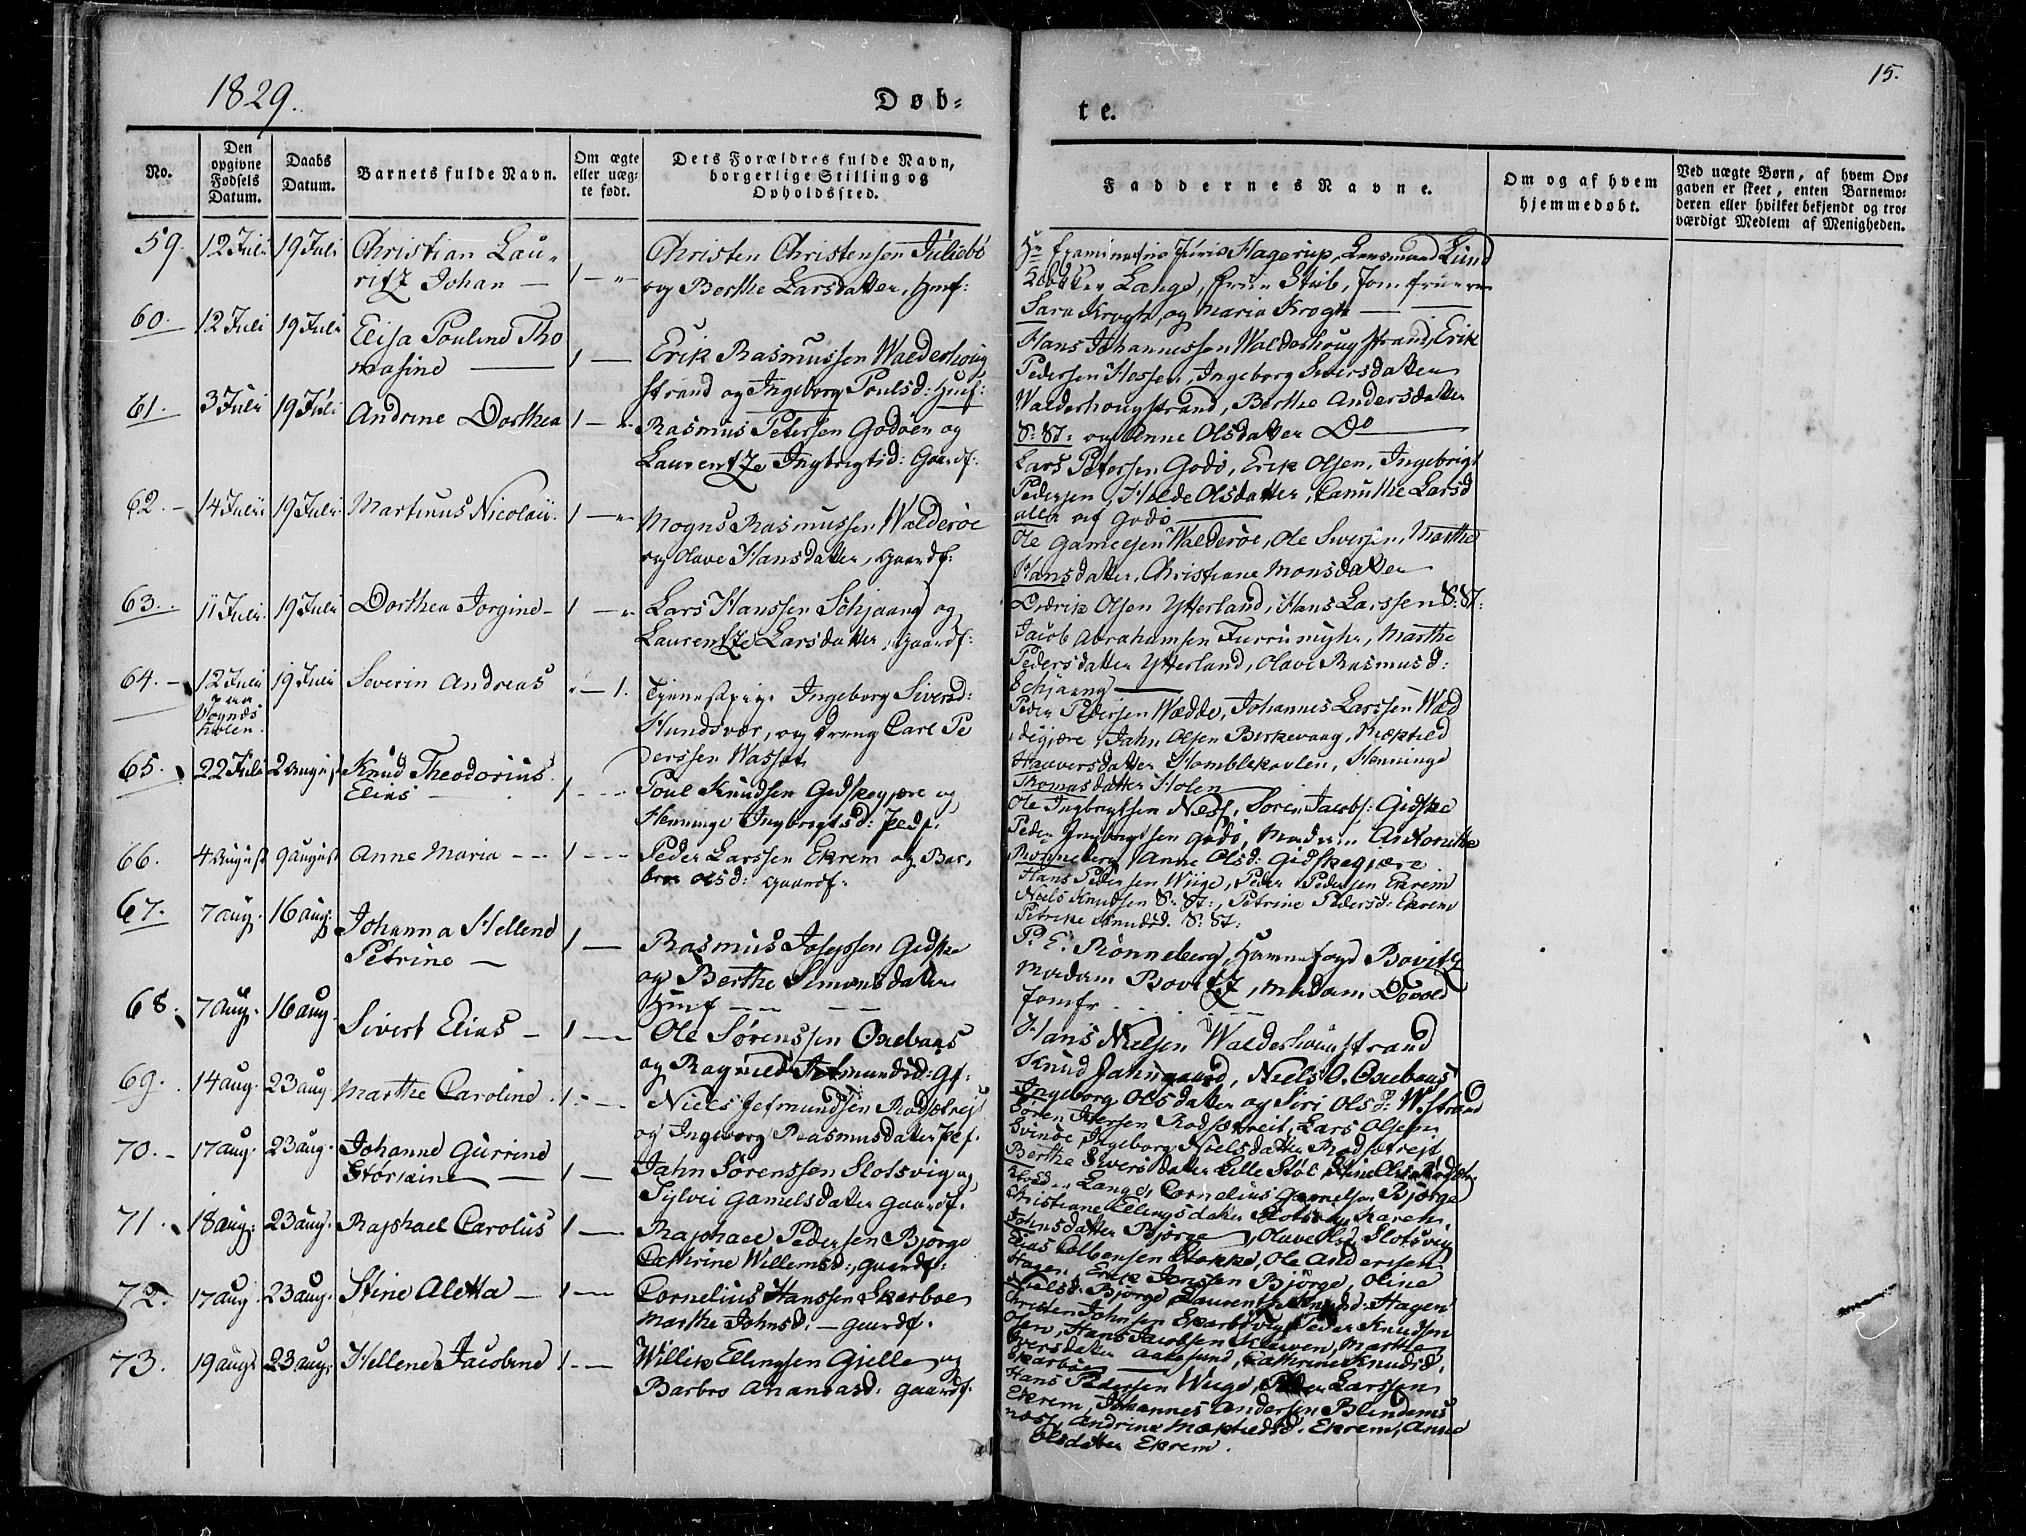 1829.
Døb-
te.
15.
No.
Den opgivne Fødsels Datum.
Daabs Datum.
Barnets fulde Navn.
Om ægte eller uægte født.
Dets Forældres fulde Navn, borgerlige Stilling og Opholdssted.
Faddernes Navne.
Om og af hvem hjemmedøbt.
Ved uægte Børn, af hvem Opgaven er skeet, enten Barnemoderen eller hvilket bekjendt og troværdigt Medlem af Menigheden.
59. 12 Juli 19 Juli Christian Lau-
ritz Johan — 1 —
Christen Christensen Juliebø
og Berthe Larsdatter, Huusf:
Hr Examinatus Juris Hagerup, Lensmand Lund
Lange, Frue Stub, Jomfruerne
Sara Krogh, og Maria Krogh —
60. 12 Juli 19 Juli Elisa Pouline Tho
masine — 1 —
Erik Rasmussen Walderhoug
strand og Ingeborg Poulsd: Huusf:
Hans Johannessen Walderhougstrand, Erik
Pedersen Hessen, Ingeborg Siversdatter
Walderhougstrand, Berthe Andersdatter
S: St: og Anne Olsdatter Do —
61. 3 Juli 19 Juli Andrine Dorthea 1 —
Rasmus Petersen Godøen og
Laurentze Ingbrigtsd: Gaardf:
Lars Petersen Godø, Erik Olsen, Ingebrigt
Pedersen, Holde Olsdatter, Canuthe Larsd
alle af Godø —
62. — 14 Julii 19 Juli Martinus Nicolaii. 1 —
Mogns Rasmussen Walderøe
og Olave Hansdatter, Gaardf:
Ole Gamelsen Walderøe, Ole Siversen, Marthe
Hansdatter, Christiane Monsdatter
63. 11 Juli 19 Juli Dorthea Jorgine — 1 —
Lars Hanssen Schjaang og
Laurentze Larsdatter, Gaardf:
Didrik Olsen Ytterland, Hans Larssen S: St:
Jacob Abrahamsen Furrumyhr, Marthe
Pedersdatter Ytterland, Olave Rasmusd:
Schjaang —
64. — 12 Juli 19 Juli Severin Andreas — 1.
paa
holen.
Tjenestepige Ingeborg Siversd:
Hundsvær, og dreng Carl Pe
derssen Wasset
Peder Pedersen Wædde, Johannes Larssen Wæd
degjære, Jahn Olsen Birkevaag, Mektild
Haaversdatter Homblekovlen, Henninge
Thomasdatter Holen
65. 22 Juli 2 August Knud Theodorius
Elias 1 —
Poul Knudsen Gidskegjære og
Henninge Ingbrigtsd:
Ole Ingbrigtsen Næss, Søren Jacobs: Gidske
Peder Ingbrigtsen Godø, Madam Antonette
Rønneberg, Anne Olsd: Gidskegjære
66. 4 August 9 August Anne Maria — 1 —
Peder Larssen Ekrem og Bar-
bro Olsd: Gaardf:
Hans Pedersen Wiige, Peder Pedersen Ekrem
Niels Knudsen S: St:, Petrine Pedersd: Ekrem
Petrike Knudsd. S: St:
67. 7 aug. 16 aug: Johanna Hellene
Petrine — 1 —
Rasmus Josepsen Gidske
og Berthe Simonsdatter
Huusf —
P. E. Rønneberg, Havnefogd Bovitz
Madam Bovitz, Madam Devold
Jomfr
68. 7 aug. 16 aug. Sivert Elias — 1 —
Ole Sørenssen Oxebaas
og Ragnild Jetmundsd: Gf:
Hans Nielsen Walderhougstrand
Knud Jahngaard, Niels O. Oxebaas
Ingeborg Olsdatter og Siri Olsd: W:Strand
69. 14 aug. 23 aug Marthe Caroline. 1. —
Niels Jetmundsen Rødsætrejt
og Ingeborg Rasmusdatter
Søren Iversen Rodsætreit, Lars Olsen
Svinøe, Ingeborg Nielsdatter Rødsætrejt
Berthe Siversdatter Lille Støl,
70. — 17 aug. 23 aug. Johanne Gurrine
1 —
Jahn Sørenssen Slotsvig og
Sylvei Gamelsdatter Gaardf.
Lange, Cornelius Gamelsen Bjørge
Christiane Ellingsdatter Slotsvig, Karen
Johnsdatter Bjørge, Olave Olsd Slotsvig
71. 18 aug: 23 aug. Raphael Carolus 1 —
Raphael Pedersen Bjørge
Cathrine Willemsd:, Gaardf:
Elias Colbensen Stokke, Ole Andersen
Hagen, Erik Janssen Bjørge, Oline
Nielsd: Bjørge, Laurentze Knudsd: Hagen
72. 17 aug. 23 aug. Stine Aletta — 1 —
Cornelius Hanssen Skarboe
Marthe Johnsd: — Gaardf.
Christen Johnsen Skarbøvig, Peder Knudsen
Hans Jacobsen Kleven, Marthe
Iversdatter Aalesund, Cathrine Knudsd.
Skarbøe
73. 19 aug: 23 aug. Hellene Jacobine 1 —
Willik Ellingsen Gjelle og
Barbro Ananiasd: Gaardf.
Hans Pedersen Wiige, Peder Larssen
Ekrem, Johannes Andersen Blindems
næs, Andrine Maktelsd. Ekrem, Anne
Olsdatter Ekrem.